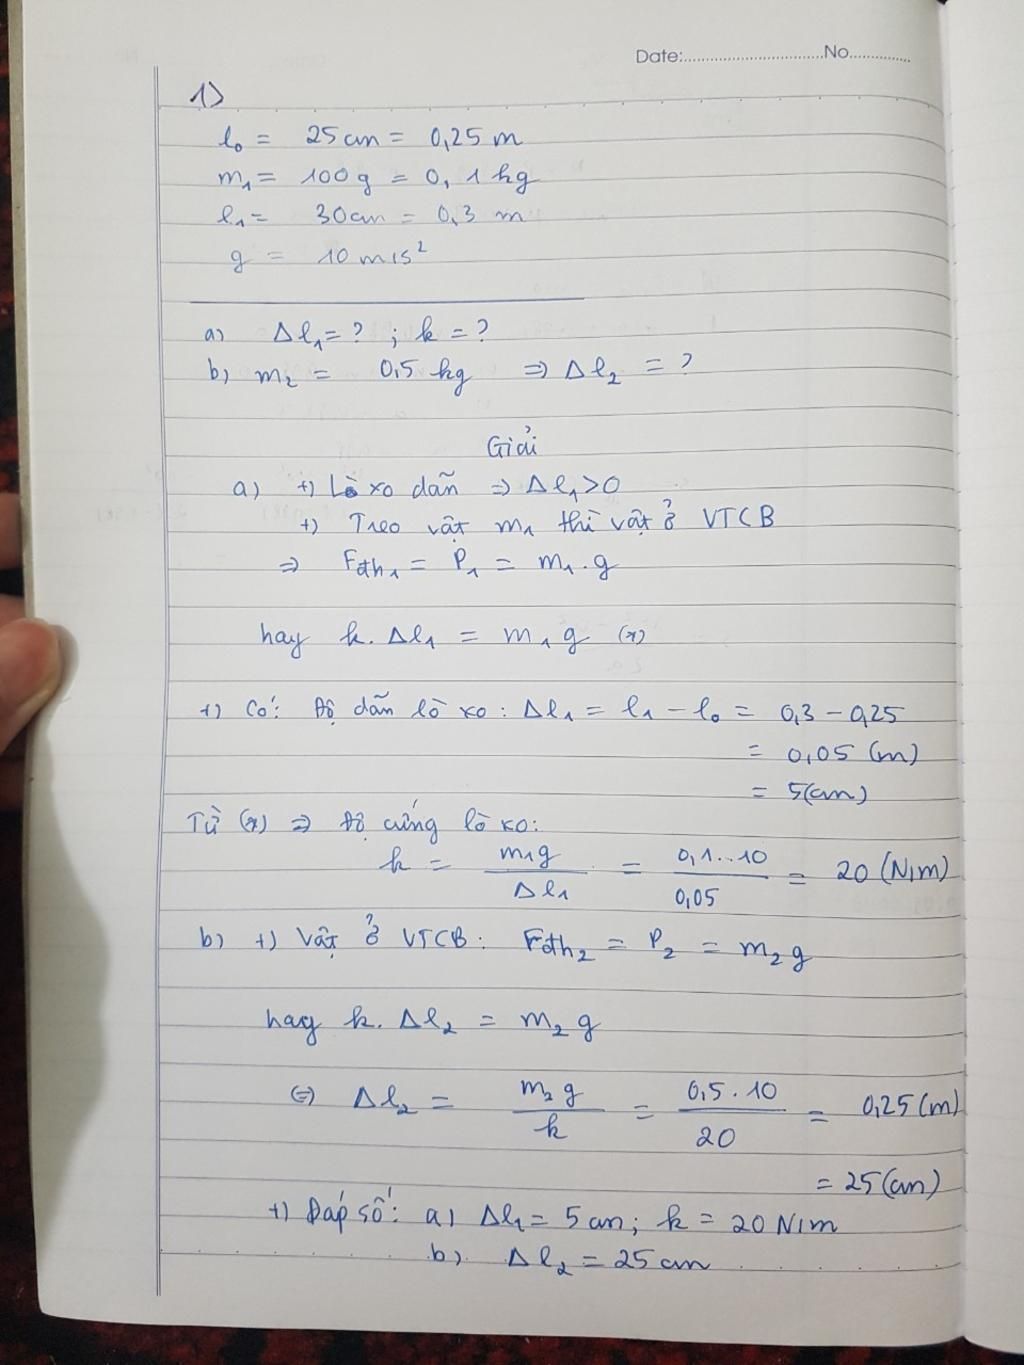 Date:................................No...............
1)
l₀ = 25cm = 0,25 m
m₁ = 100g = 0,1 kg
l₁ = 30cm = 0,3 m
g = 10 m/s²
a) Δl₁ = ? ; k = ?
b) m₂ = 0,5 kg ⇒ Δl₂ = ?
Giải
a) +) Lò xo dãn ⇒ Δl₁ > 0
+) Treo vật m₁ thì vật ở VTCB
⇒ Fđh₁ = P₁ = m₁.g
hay k.Δl₁ = m₁g (*)
+) Có: Độ dãn lò xo: Δl₁ = l₁ - l₀ = 0,3 - 0,25
= 0,05 (m)
= 5(cm)
Từ (*) ⇒ Độ cứng lò xo:
k = m₁g / Δl₁ = 0,1..10 / 0,05 = 20 (N/m)
b) +) Vật ở VTCB: Fđh₂ = P₂ = m₂g
hay k.Δl₂ = m₂g
⇔ Δl₂ = m₂g / k = 0,5.10 / 20 = 0,25(m)
= 25(cm)
+) Đáp số: a) Δl₁ = 5cm; k = 20 N/m
b) Δl₂ = 25cm